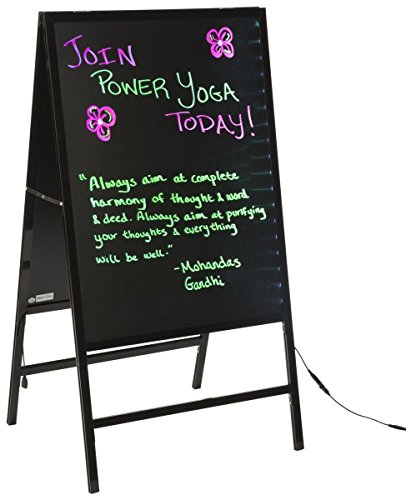 JOIN
POWER YOGA
TODAY!
"Always aim at complete
harmony of thought & word
& deed. Always aim at purifying
your thoughts & everything
will be well."
-Mohandas
Gandhi